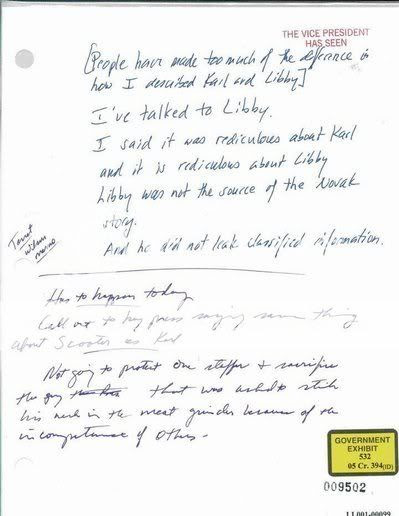 THE VICE PRESIDENT
HAS SEEN
[People have made too much of the difference in
how I described Karl and Libby]
I've talked to Libby.
I said it was rediculous about Karl
and it is rediculous about Libby
Libby was not the source of the Novak
story.
And he did not leak classified information.
Tenet
Wilson
memo
Has to happen today
Call out to key press saying same thing
about Scooter as Karl
Not going to protect one staffer + sacrifice
the guy that was asked to stick
his neck in the meat grinder because of the
incompetence of others -
GOVERNMENT
EXHIBIT
532
05 Cr. 394 (ID)
009502
LL001-00099